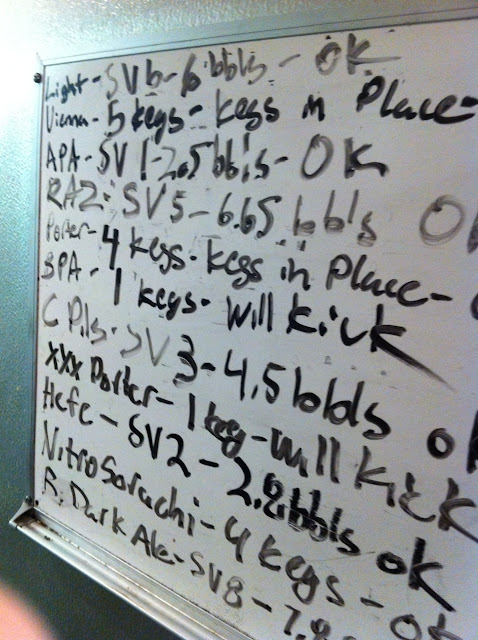 Light - SV6 - 6 bbls - OK
Vienna - 5 kegs - kegs in Place -
APA - SV1 - 2.5 bbls - OK
RAZ - SV5 - 6.65 bbls OK
Porter - 4 kegs - kegs in Place -
BPA - 1 kegs - will kick
C Pils - SV3 - 4.5 bbls ok
XXX Porter - 1 keg - will kick
Hefe - SV2 - 2.8 bbls ok
Nitro Sorachi - 4 kegs - ok
B. Dark Ale - SV8 - 7.8